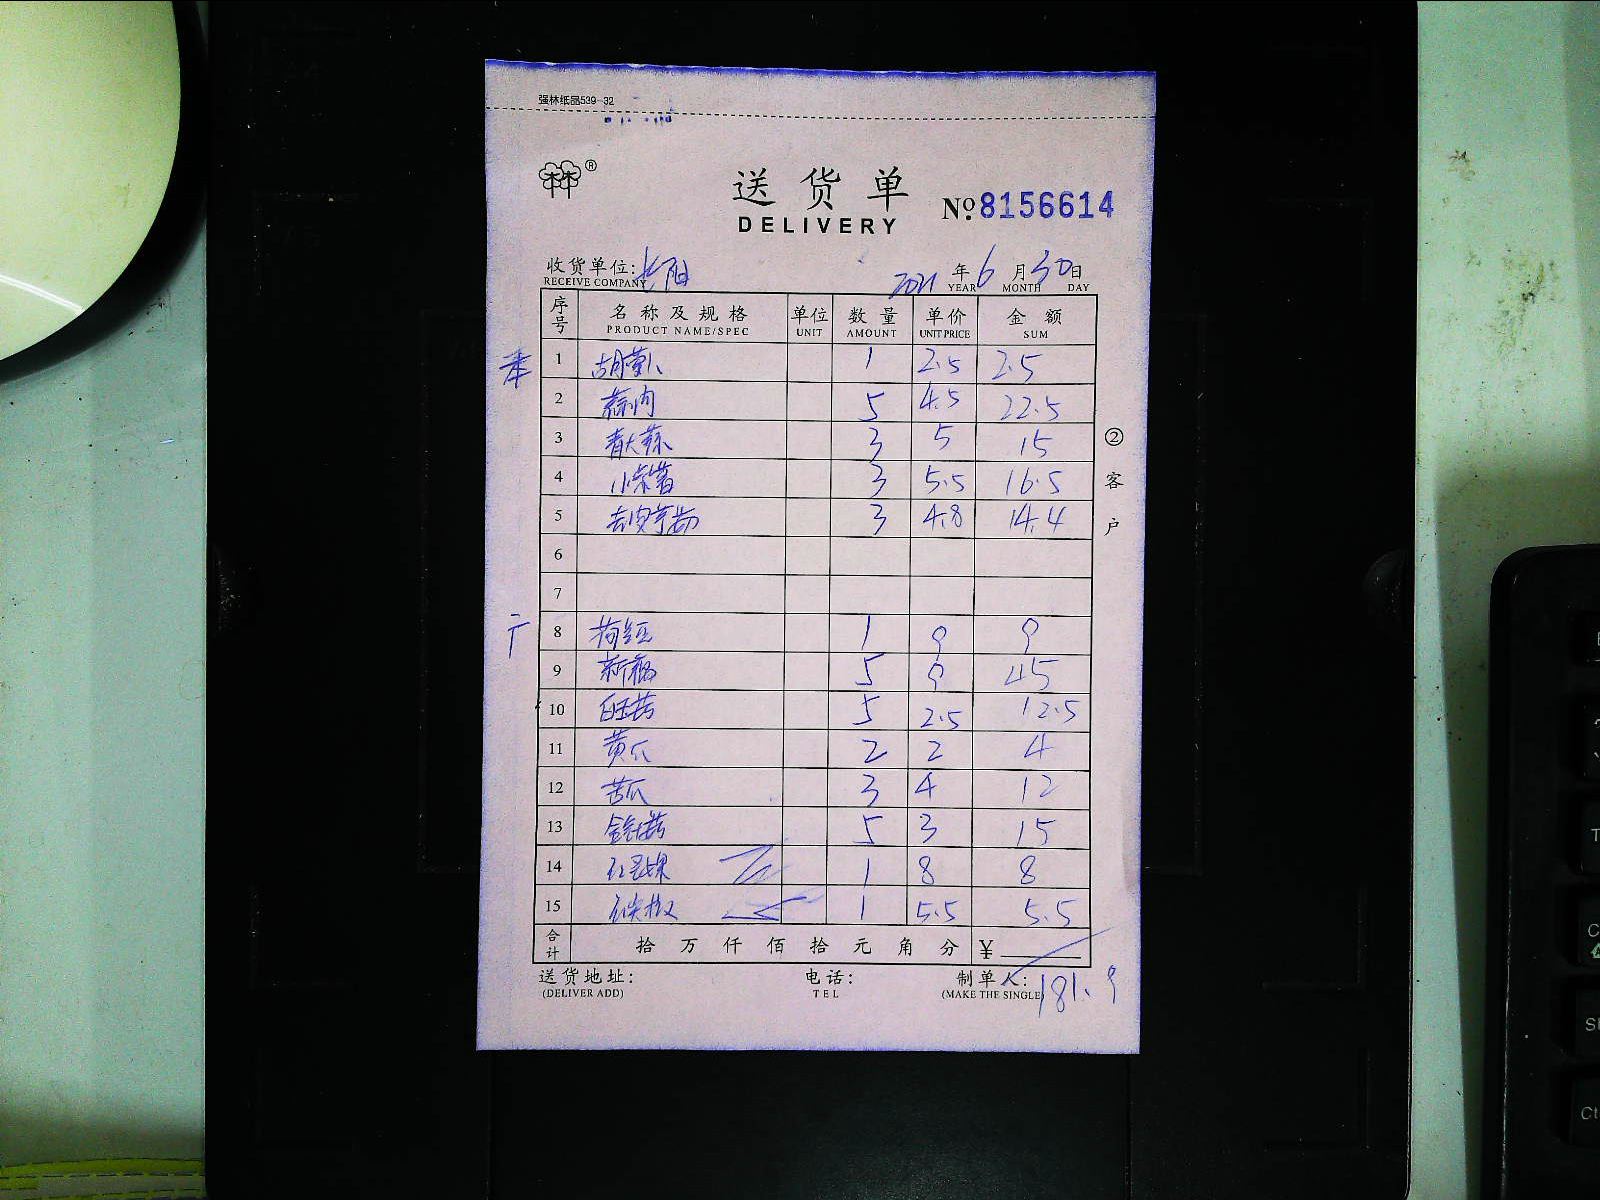 强林纸品539-32
®
送货单
DELIVERY
No.8156614
收货单位:长阳 2021年6月30日
RECEIVE COMPANY YEAR MONTH DAY
序号 名称及规格 单位 数量 单价 金额
PRODUCT NAME/SPEC UNIT AMOUNT UNIT PRICE SUM
1 胡萝卜 1 2.5 2.5
2 蒜肉 5 4.5 22.5
3 青大蒜 3 5 15
4 小紫薯 3 5.5 16.5
5 去皮芋艿 3 4.8 14.4
6
7
8 1 9 9
9 5 9 45
10 白玉菇 5 2.5 12.5
11 黄瓜 2 2 4
12 苦瓜 3 4 12
13 金针菇 5 3 15
14 1 8 8
15 1 5.5 5.5
合计 拾万仟佰拾元角分 ¥
②客户
送货地址: 电话: 制单人: 181.9
(DELIVER ADD) TEL (MAKE THE SINGLE)